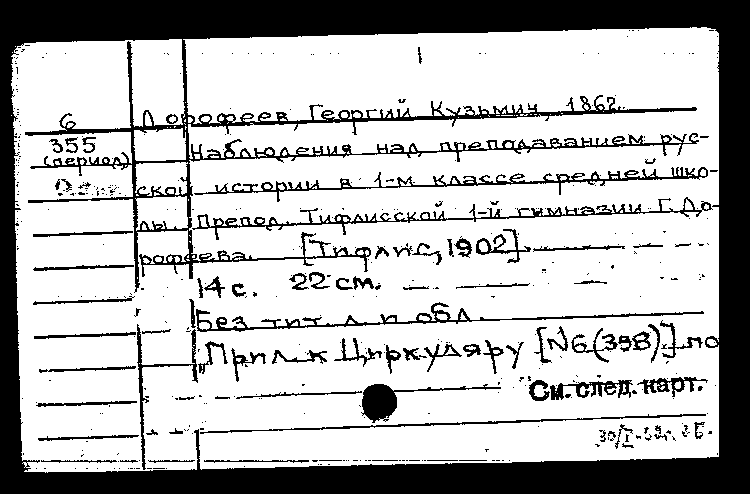 6 Дорофеев, Георгий Кузьмич, 1862.
355 Наблюдения над преподаванием рус-
(период)
ской истории в 1-м классе средней шко-
лы. Препод. Тифлисской 1-й гимназии Г. До-
рофеева. [Тифлис, 1902].
14 с. 22 см.
Без тит. л. и обл.
"Прил. к Циркуляру [№6(398)] по
См. след. карт.